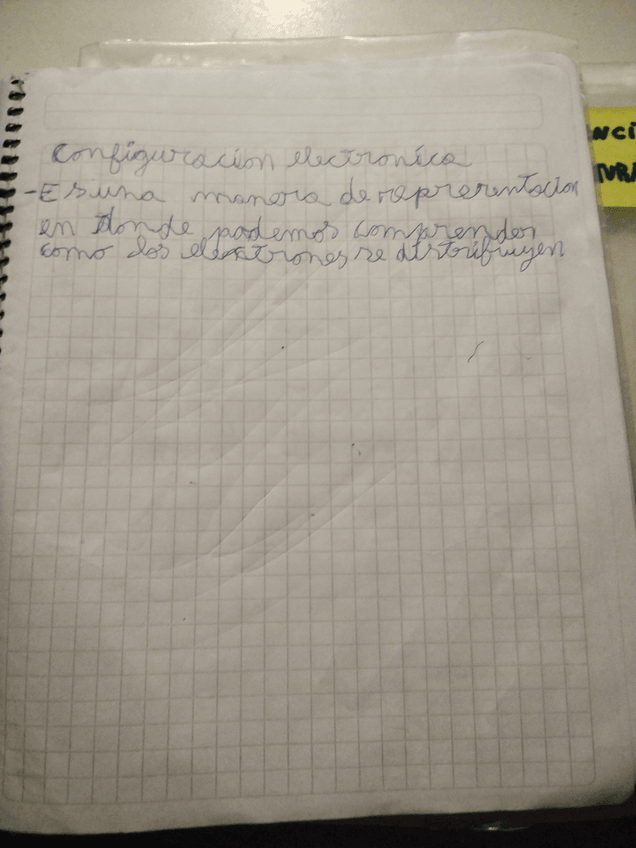 configuracion electronica
-Es una manera de representacion
en donde podemos comprender
como los electrones se distribuyen
NCI
TURA